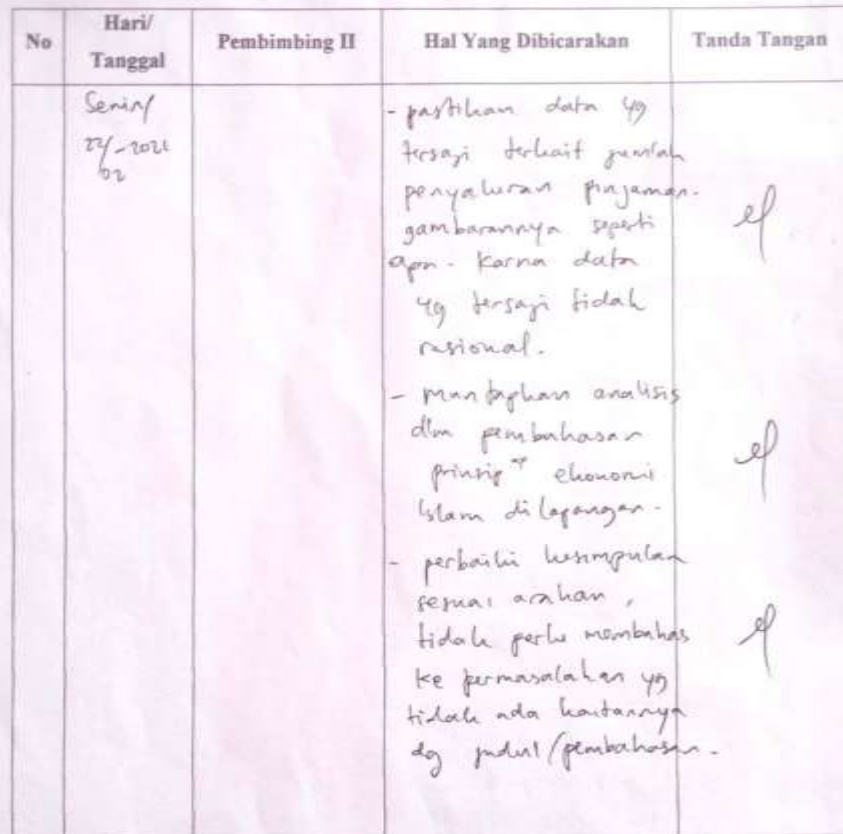 No
Hari/
Tanggal
Pembimbing II
Hal Yang Dibicarakan
Tanda Tangan
Senin/
22/-2021
02
- pastikan data yg
tersaji terkait jumlah
penyaluran pinjaman.
gambarannya seperti
apa. Karna data
yg tersaji tidak
rasional.
- mantapkan analisis
dlm pembahasan
prinsip ekonomi
Islam di lapangan.
- perbaiki kesimpulan
sesuai arahan,
tidak perlu membahas
ke permasalahan yg
tidak ada kaitannya
dg judul/pembahasan.